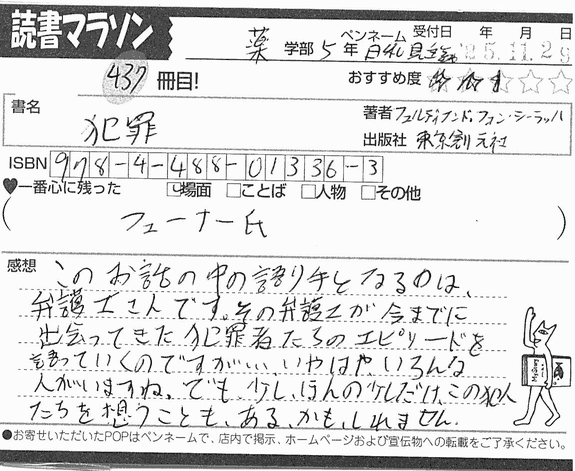 読書マラソン
薬 学部 5 年 ペンネーム 受付日 年 月 日
'25.11.29
437 冊目!
おすすめ度
書名 犯罪
著者 フェルディナンド・フォン・シーラッハ
出版社 東京創元社
ISBN 978-4-488-01336-3
♥一番心に残った □場面 □ことば □人物 □その他
(フェーナー氏)
感想
このお話の中の語り手となるのは、
弁護士さんです。その弁護士が今までに
出会ってきた犯罪者たちのエピソードを
語っていくのですが…、いやはや、いろんな
人がいますね。でも、少し、ほんの少しだけ、この犯人
たちを想うことも、ある、かも、しれません。
●お寄せいただいたPOPはペンネームで、店内で掲示、ホームページおよび宣伝物への転載をご了承ください。